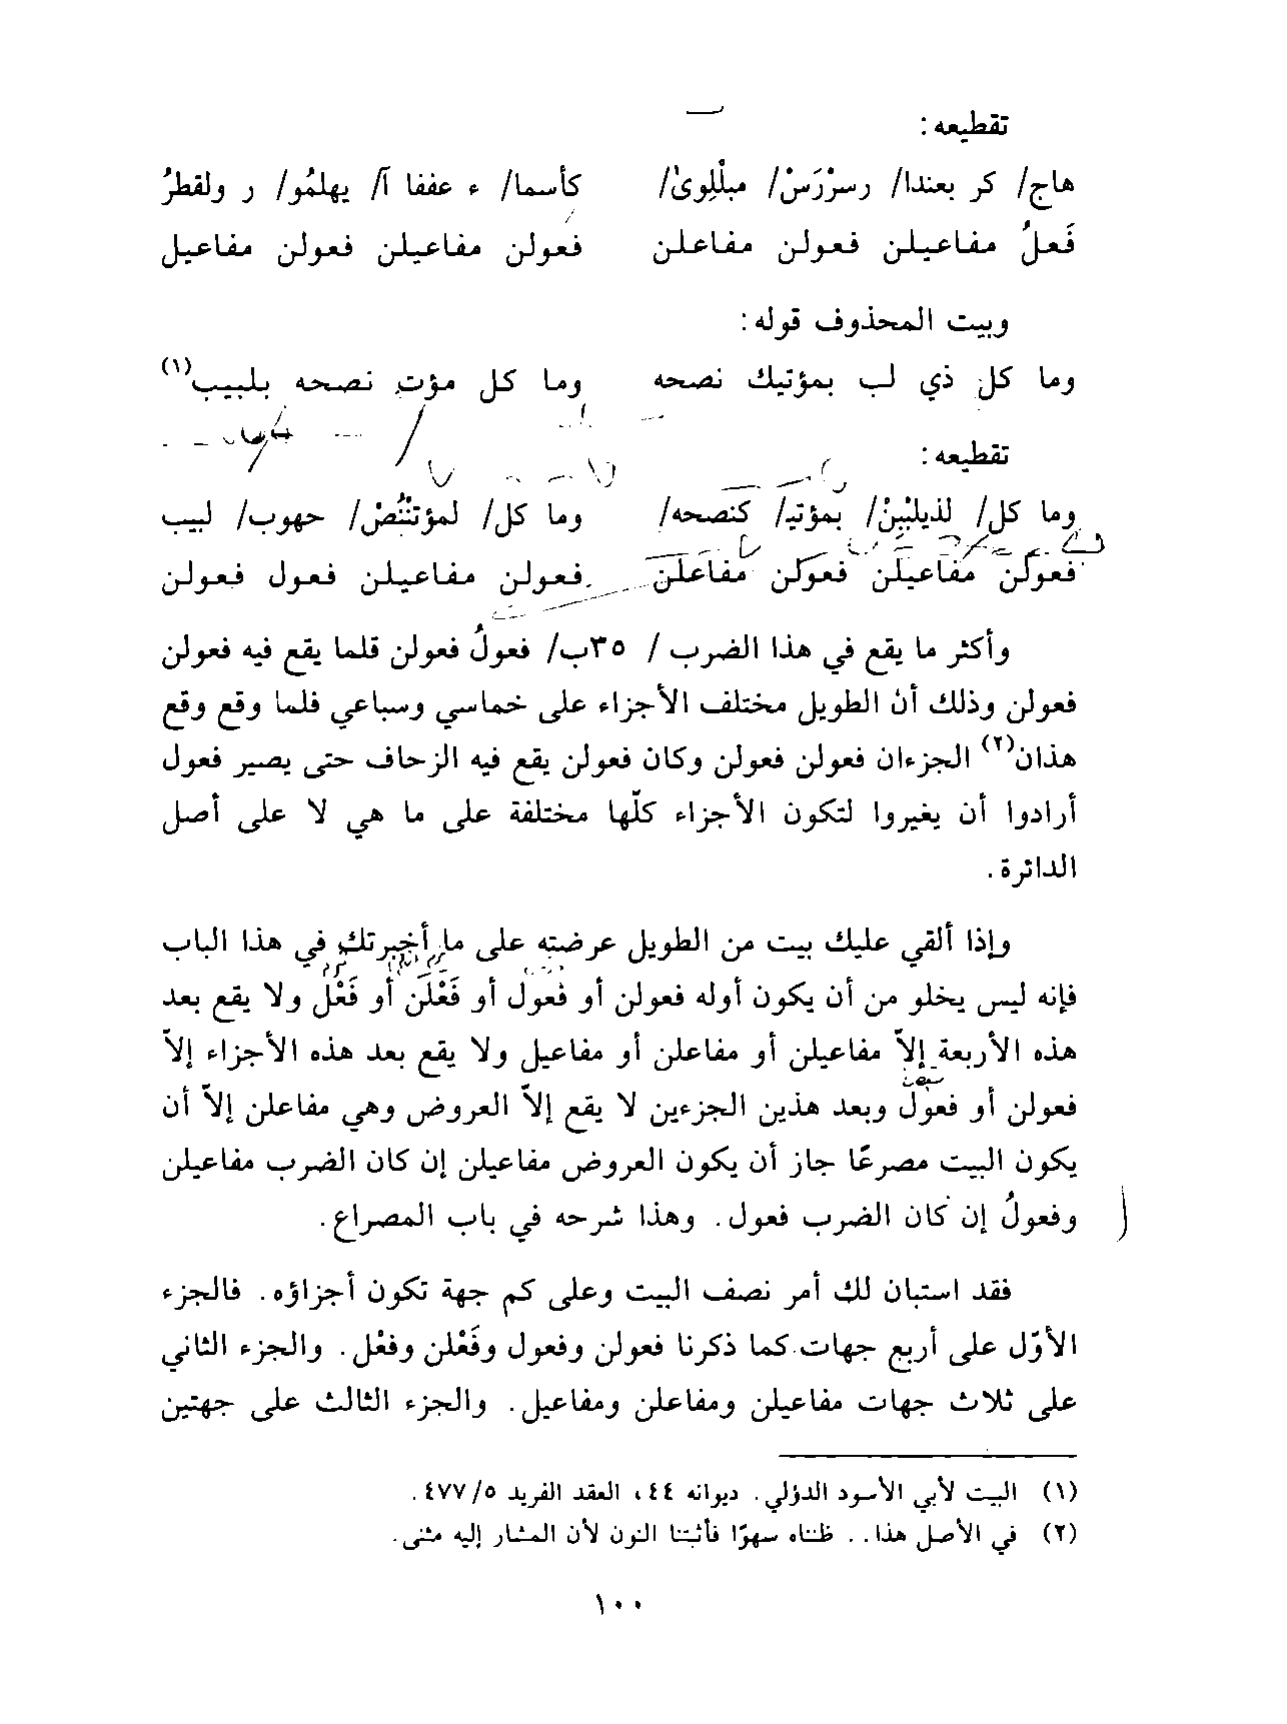 تقطيعه :
هاج/ كر بعندا/ رسزْرَسْ/ مبلْلِوىٰ/ كأسما/ ء عففا آ/ يهلمُو/ ر ولقطرُ
فَعلُ مفاعيلن فعولن مفاعلن فعولن مفاعيلن فعولن مفاعيل
وبيت المحذوف قوله :
وما كل ذي لب بمؤتيك نصحه وما كل مؤت نصحه بلبيب(١)
تقطيعه :
وما كل/ لذيلبْبِنْ/ بمؤتيـ/ كنصحه/ وما كل/ لمؤتنْنُصْ/ حهوب/ لبيب
فعولن مفاعيلن فعولن مفاعلن فعولن مفاعيلن فعول فعولن
وأكثر ما يقع في هذا الضرب / ٣٥ب/ فعولُ فعولن قلما يقع فيه فعولن
فعولن وذلك أن الطويل مختلف الأجزاء على خماسي وسباعي فلما وقع وقع
هذان(٢) الجزءان فعولن فعولن وكان فعولن يقع فيه الزحاف حتى يصير فعول
أرادوا أن يغيروا لتكون الأجزاء كلّها مختلفة على ما هي لا على أصل
الدائرة .
وإذا ألقي عليك بيت من الطويل عرضته على ما أخبرتك في هذا الباب
فإنه ليس يخلو من أن يكون أوله فعولن أو فعول أو فَعْلن أو فَعْل ولا يقع بعد
هذه الأربعة إلاّ مفاعيلن أو مفاعلن أو مفاعيل ولا يقع بعد هذه الأجزاء إلاّ
فعولن أو فعول وبعد هذين الجزءين لا يقع إلاّ العروض وهي مفاعلن إلاّ أن
يكون البيت مصرعًا جاز أن يكون العروض مفاعيلن إن كان الضرب مفاعيلن
وفعولُ إن كان الضرب فعول . وهذا شرحه في باب المصراع .
فقد استبان لك أمر نصف البيت وعلى كم جهة تكون أجزاؤه . فالجزء
الأوّل على أربع جهات كما ذكرنا فعولن وفعول وفَعْلن وفعْل . والجزء الثاني
على ثلاث جهات مفاعيلن ومفاعلن ومفاعيل . والجزء الثالث على جهتين
(١) البيت لأبي الأسود الدؤلي . ديوانه ٤٤ ، العقد الفريد ٥/ ٤٧٧ .
(٢) في الأصل هذا . . ظناه سهوًا فأثبتنا النون لأن المشار إليه مثنى .
١٠٠